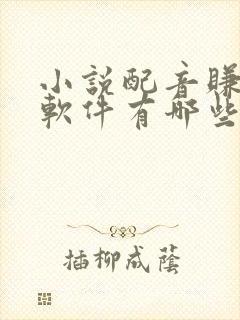 小説配音賺
軟件有哪些
插柳成蔭